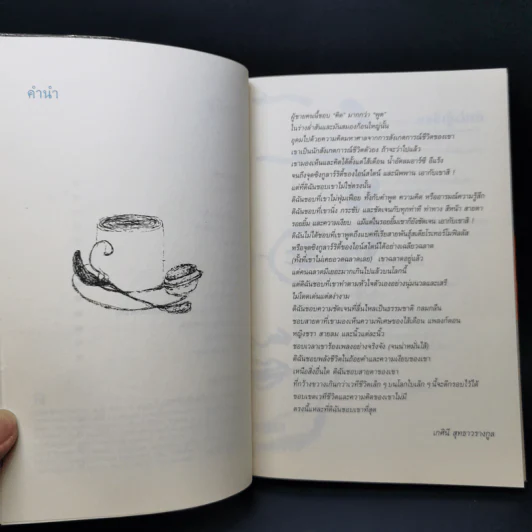 คำนำ
ผู้ชายคนนี้ชอบ "คิด" มากกว่า "พูด"
ในร่างล่ำสันและมันสมองก้อนใหญ่นั้น
อุดมไปด้วยความคิดมหาศาลจากการสังเกตการณ์ชีวิตของเขา
เขาเป็นนักสังเกตการณ์ชีวิตตัวยง ถ้าจะว่าไปแล้ว
เขามองเห็นและคิดได้ตั้งแต่ไส้เดือน น้ำอัดลมอาร์ซี อีแร้ง
จนถึงจุดซิงกูลาริตี้ของไอน์สไตน์ และนิพพาน เอากับเขาสิ !
แต่ที่ดิฉันชอบเขาไม่ใช่ตรงนั้น
ดิฉันชอบที่เขาไม่ฟุ่มเฟือย ทั้งกับคำพูด ความคิด หรืออารมณ์ความรู้สึก
ดิฉันชอบที่เขานิ่ง กระชับ และชัดเจนกับทุกท่าที ท่าทาง สีหน้า สายตา
รอยยิ้ม และความเงียบ แม้แต่ในรอยยิ้มเขาก็ยังชัดเจน เอากับเขาสิ !
ดิฉันไม่ได้ชอบที่เขาพูดถึงแบคทีเรียสายพันธุ์สเตียโรเทอร์โมฟิลลัส
หรือจุดซิงกูลาริตี้ของไอน์สไตน์ได้อย่างเฉลียวฉลาด
(ทั้งที่เขาไม่เคยอวดฉลาดเลย) เขาฉลาดอยู่แล้ว
แต่คนฉลาดมีเยอะมากเกินไปแล้วบนโลกนี้
แต่ดิฉันชอบที่เขาทำตามหัวใจตัวเองอย่างนุ่มนวลและเสรี
ไม่โดดเด่นแต่สง่างาม
ดิฉันชอบความชัดเจนที่ลื่นไหลเป็นธรรมชาติ กลมกลืน
ชอบสายตาที่เขามองเห็นความพิเศษของไส้เดือน เพลงกัดอน
หญิงชรา สายลม และนิ้วแต่ละนิ้ว
ชอบเวลาเขาร้องเพลงอย่างจริงจัง (จนน่าหมั่นไส้)
ดิฉันชอบพลังชีวิตในถ้อยคำและความเงียบของเขา
เหนือสิ่งอื่นใด ดิฉันชอบสายตาของเขา
ที่กว้างขวางเกินกว่าเวทีชีวิตเล็ก ๆ บนโลกใบเล็ก ๆ นี้จะตีกรอบไว้ได้
ขอบเขตเวทีชีวิตและความคิดของเขาไม่มี
ตรงนี้แหละที่ดิฉันชอบเขาที่สุด
เกศินี สุทธาวรางกูล